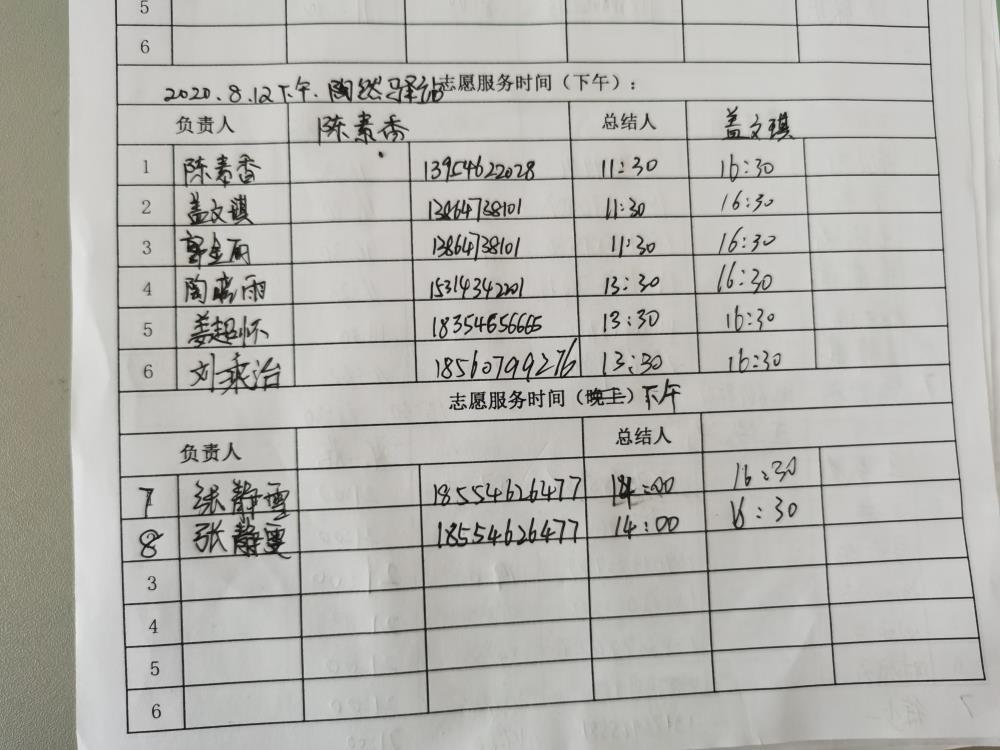 5
6
2020.8.12下午.陶然驿站志愿服务时间（下午）：
负责人 陈素香 总结人 盖文琪
1 陈素香 13954622028 11:30 16:30
2 盖文琪 13864738101 11:30 16:30
3 郭金丽 13864738101 11:30 16:30
4 陶晓雨 15314342201 13:30 16:30
5 盖起怀 18354656665 13:30 16:30
6 刘乘治 18560799276 13:30 16:30
志愿服务时间（晚上）下午
负责人 总结人
7 张静雪 18554626477 14:00 16:30
8 张静雯 18554626477 14:00 16:30
3
4
5
6